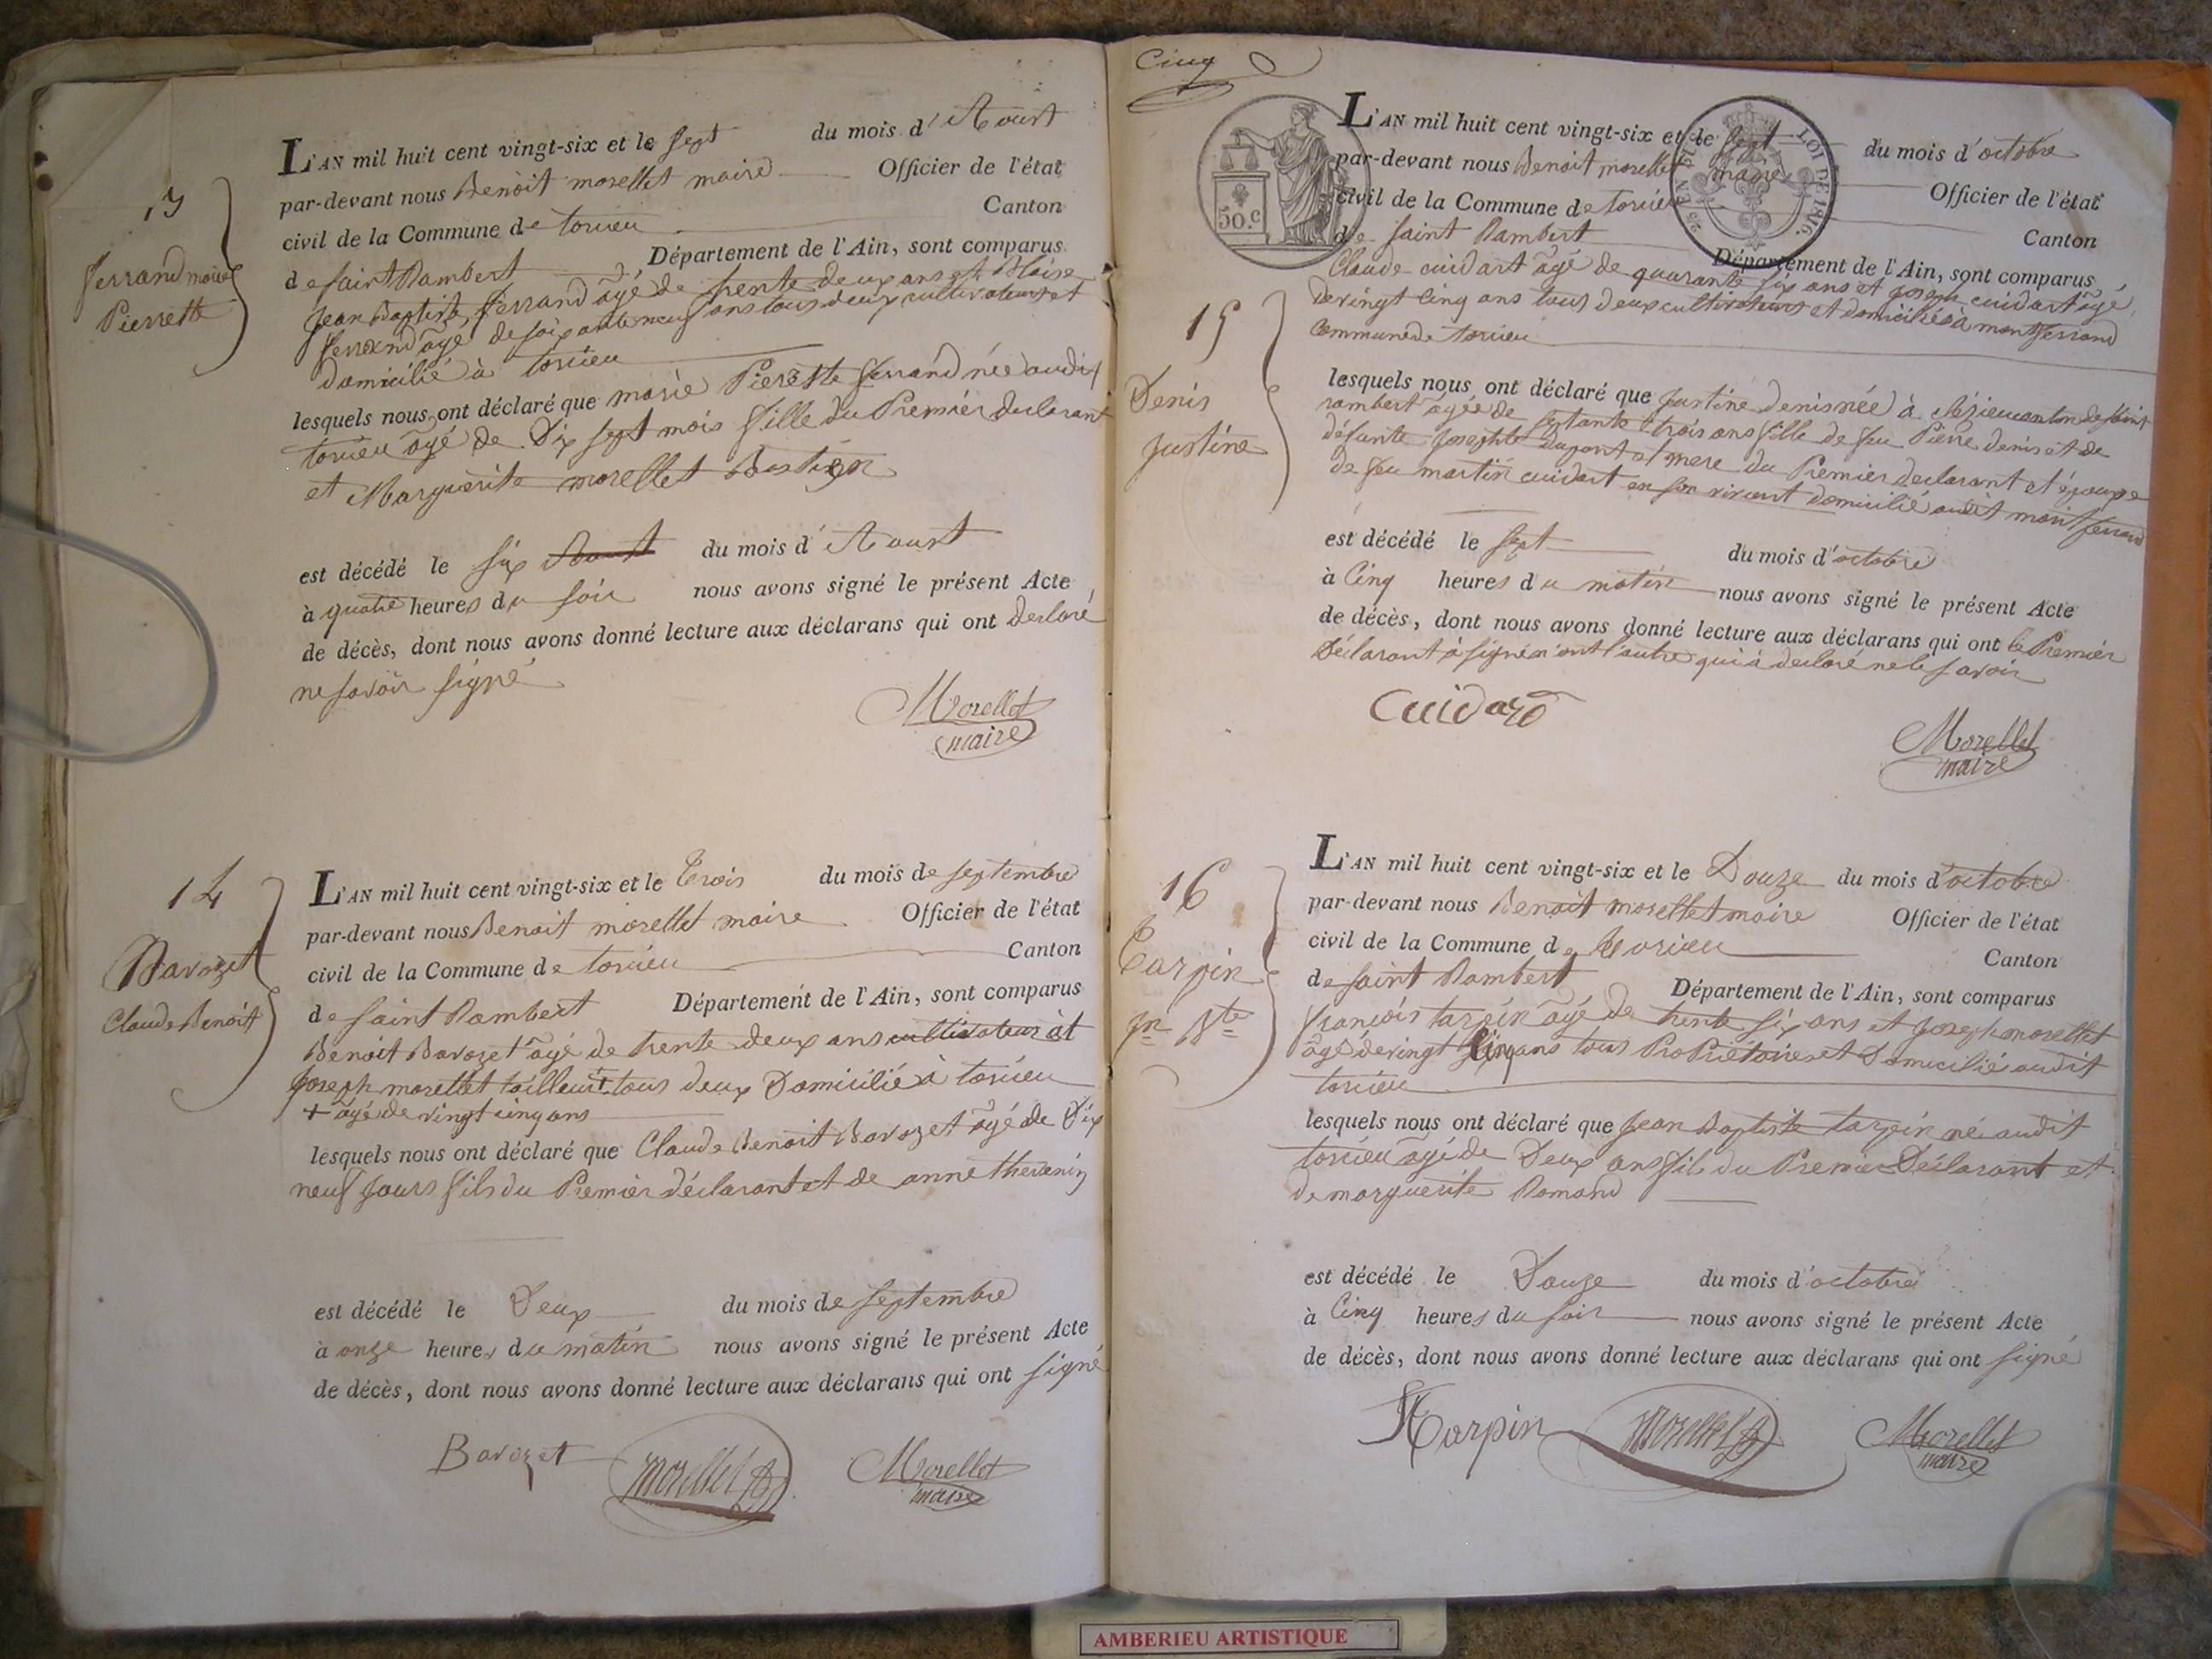 13
ferrand marie
Pierrette
L'AN mil huit cent vingt-six et le sept du mois d'Aoust
par-devant nous Benoit morellet maire Officier de l'état
civil de la Commune de torcieu Canton
de saint Rambert Département de l'Ain, sont comparus
Jean Baptiste ferrand âgé de trente deux ans et Blaise
ferrand âgé de soixante neuf ans tous deux cultivateurs et
domicilié à torcieu
lesquels nous ont déclaré que marie Pierette ferrand née audit
torcieu âgé de Dix sept mois fille du Premier declarant
et Marguerite morellet Bastien
est décédé le six Aoust du mois d'Aoust
à quatre heures du soir nous avons signé le présent Acte
de décès, dont nous avons donné lecture aux déclarans qui ont declaré
ne savoir signé
Morellet
maire
14
Bavozet
Claude Benoit
L'AN mil huit cent vingt-six et le trois du mois de septembre
par-devant nous Benoit morellet maire Officier de l'état
civil de la Commune de torcieu Canton
de saint Rambert Département de l'Ain, sont comparus
Benoit Bavozet âgé de trente deux ans cultivateur et
Joseph morellet tailleur + tous deux Domicilié à torcieu
+ âgé de vingt cinq ans
lesquels nous ont déclaré que Claude Benoit Bavozet âgé de Dix
neuf Jours fils du Premier déclarant et de anne thevenin
est décédé le Deux du mois de septembre
à onze heures du matin nous avons signé le présent Acte
de décès, dont nous avons donné lecture aux déclarans qui ont signé
Bavozet morellet Morellet
maire
Cinq
50.c
LOI DE 1816.
L'AN mil huit cent vingt-six et le sept du mois d'octobre
par-devant nous Benoit morellet maire Officier de l'état
civil de la Commune de torcieu Canton
de saint Rambert Département de l'Ain, sont comparus
Claude cuidart âgé de quarante six ans et Joseph cuidart âgé
de vingt cinq ans tous deux cultivateurs et domiciliés à montferrand
commune de torcieu
15
Denis
Justine
lesquels nous ont déclaré que Justine denis née à canton de saint
rambert âgée de septante trois ans fille de feu Pierre denis et de
défunte Josephte dupont et mere du Premier declarant et épouse
de feu martin cuidart en son vivant domicilié audit montferrand
est décédé le sept du mois d'octobre
à Cinq heures du matin nous avons signé le présent Acte
de décès, dont nous avons donné lecture aux déclarans qui ont le Premier
Déclarant à signé l'autre qui à declaré ne le savoir
Cuidard
Morellet
maire
16
Tarpin
Jn Bte
L'AN mil huit cent vingt-six et le Douze du mois d'octobre
par-devant nous Benoit morellet maire Officier de l'état
civil de la Commune de torcieu Canton
de saint Rambert Département de l'Ain, sont comparus
françois tarpin âgé de trente six ans et Joseph morellet
âgé de vingt Cinq ans tous Propriétaires et Domicilié audit
torcieu
lesquels nous ont déclaré que Jean Baptiste tarpin né audit
torcieu âgé de Deux ans fils du Premier Déclarant et
de marguerite Romand
est décédé le Douze du mois d'octobre
à Cinq heures du soir nous avons signé le présent Acte
de décès, dont nous avons donné lecture aux déclarans qui ont signé
Tarpin morellet Morellet
maire
AMBERIEU ARTISTIQUE